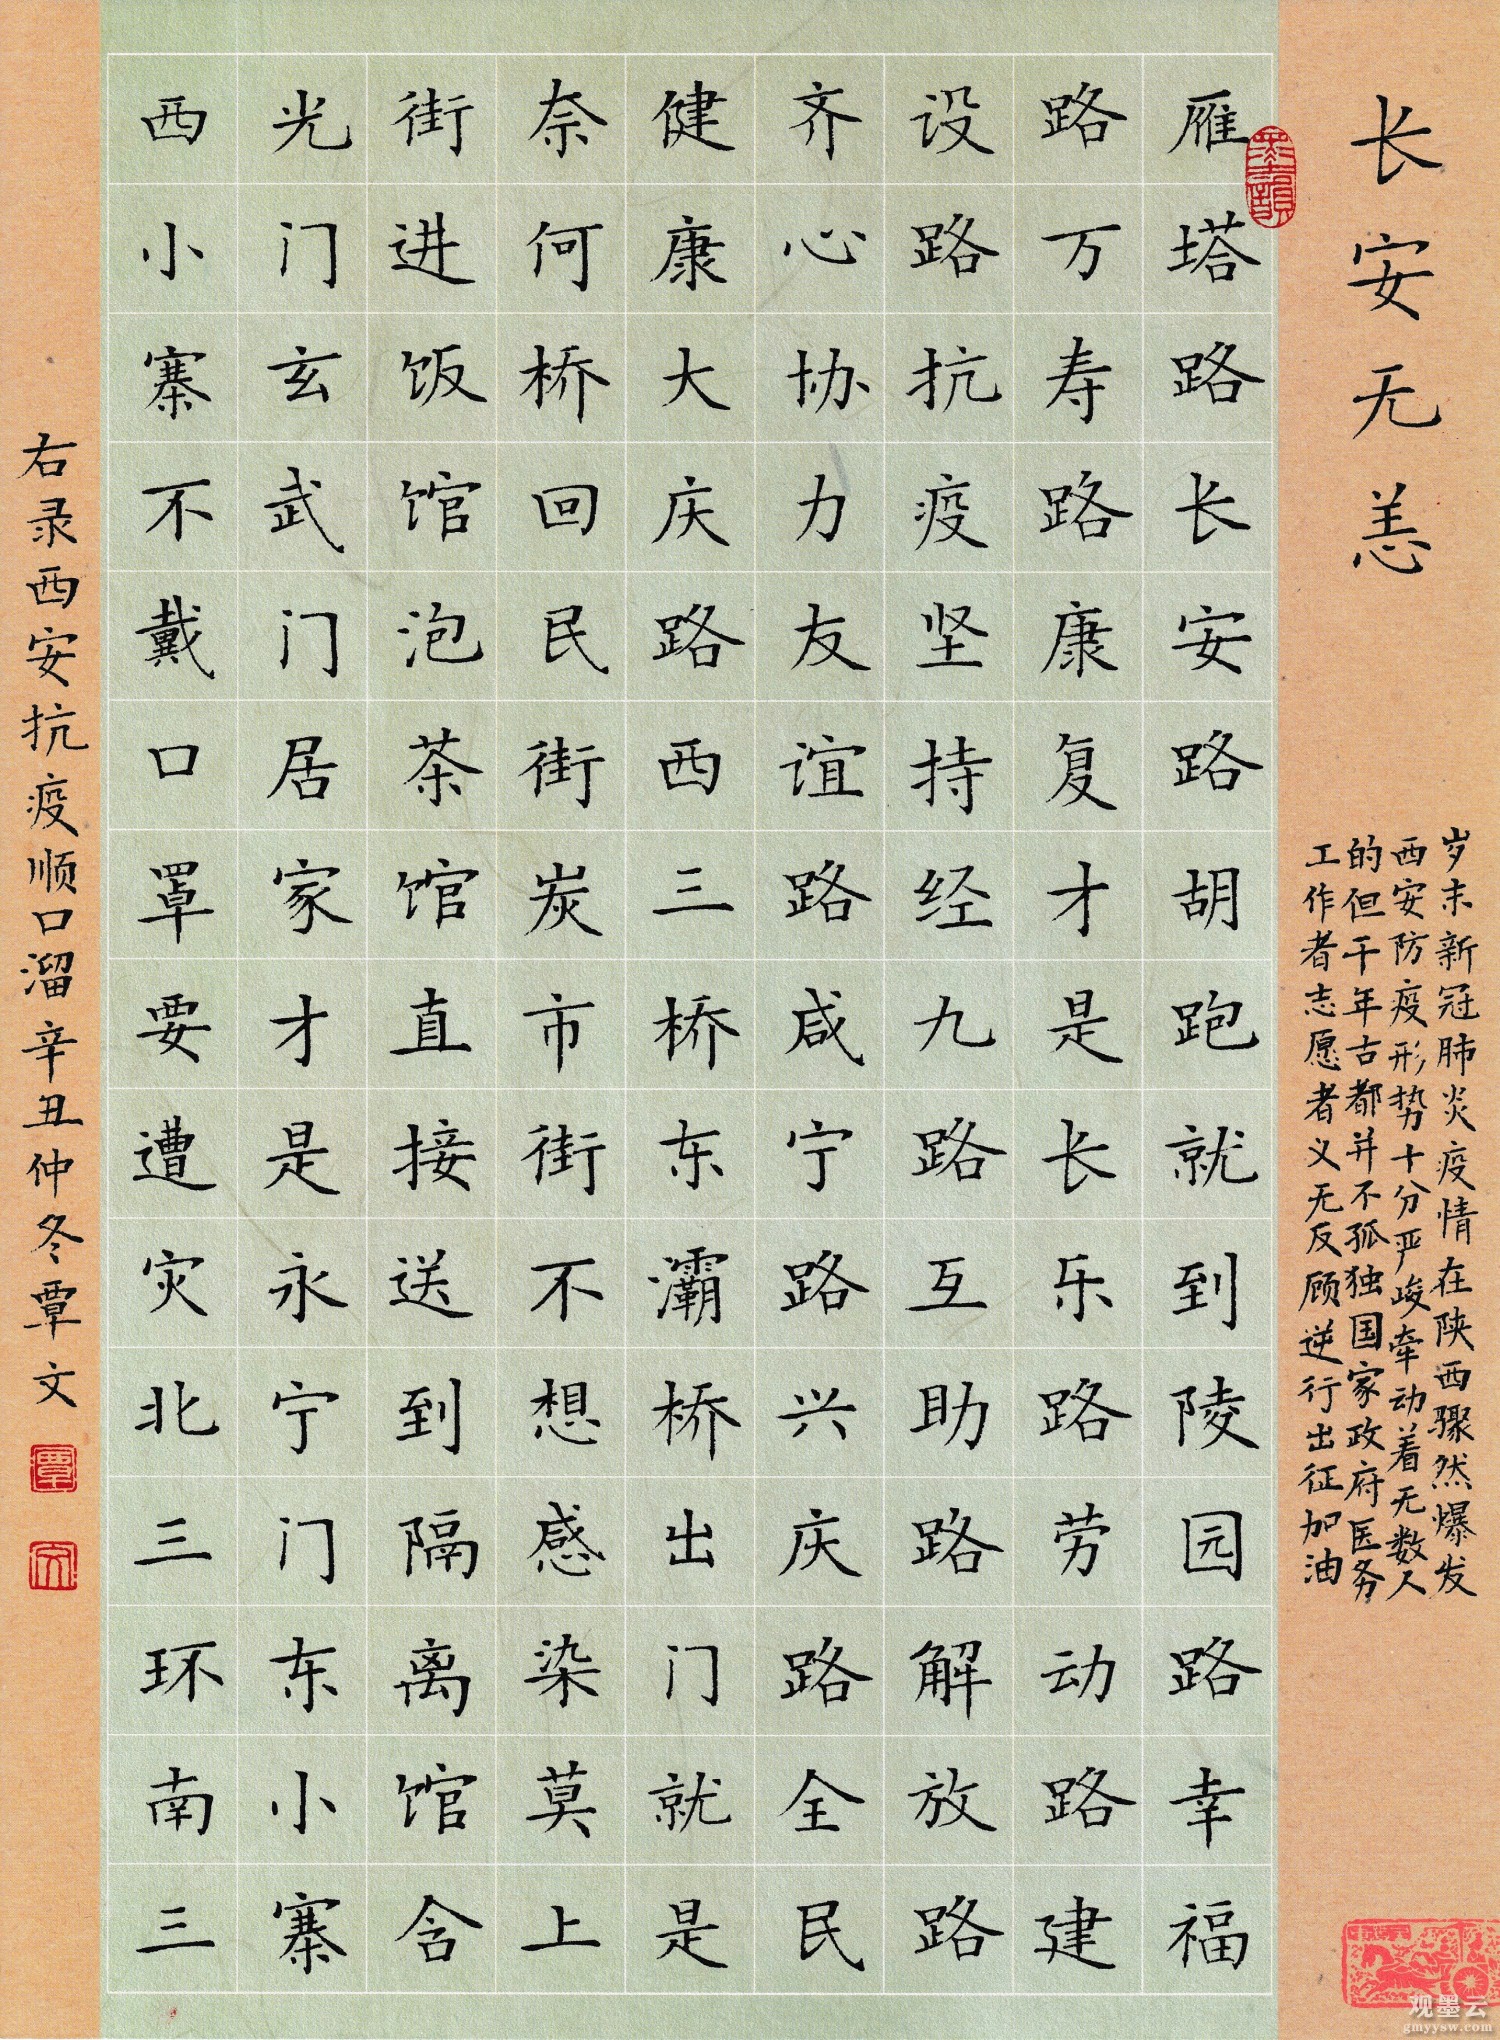 长安无恙
岁末新冠肺炎疫情在陕西骤然爆发
西安防疫形势十分严峻牵动着无数人
的但千年古都并不孤独国家政府医务
工作者志愿者义无反顾逆行出征加油
雁塔路长安路胡跑就到陵园路幸福
路万寿路康复才是长乐路劳动路建
设路抗疫坚持经九路互助路解放路
齐心协力友谊路咸宁路兴庆路全民
健康大庆路西三桥东灞桥出门就是
奈何桥回民街炭市街不想感染莫上
街进饭馆泡茶馆直接送到隔离馆含
光门玄武门居家才是永宁门东小寨
西小寨不戴口罩要遭灾北三环南三
右录西安抗疫顺口溜辛丑仲冬覃文
覃
文
观墨云
gmyysw.com